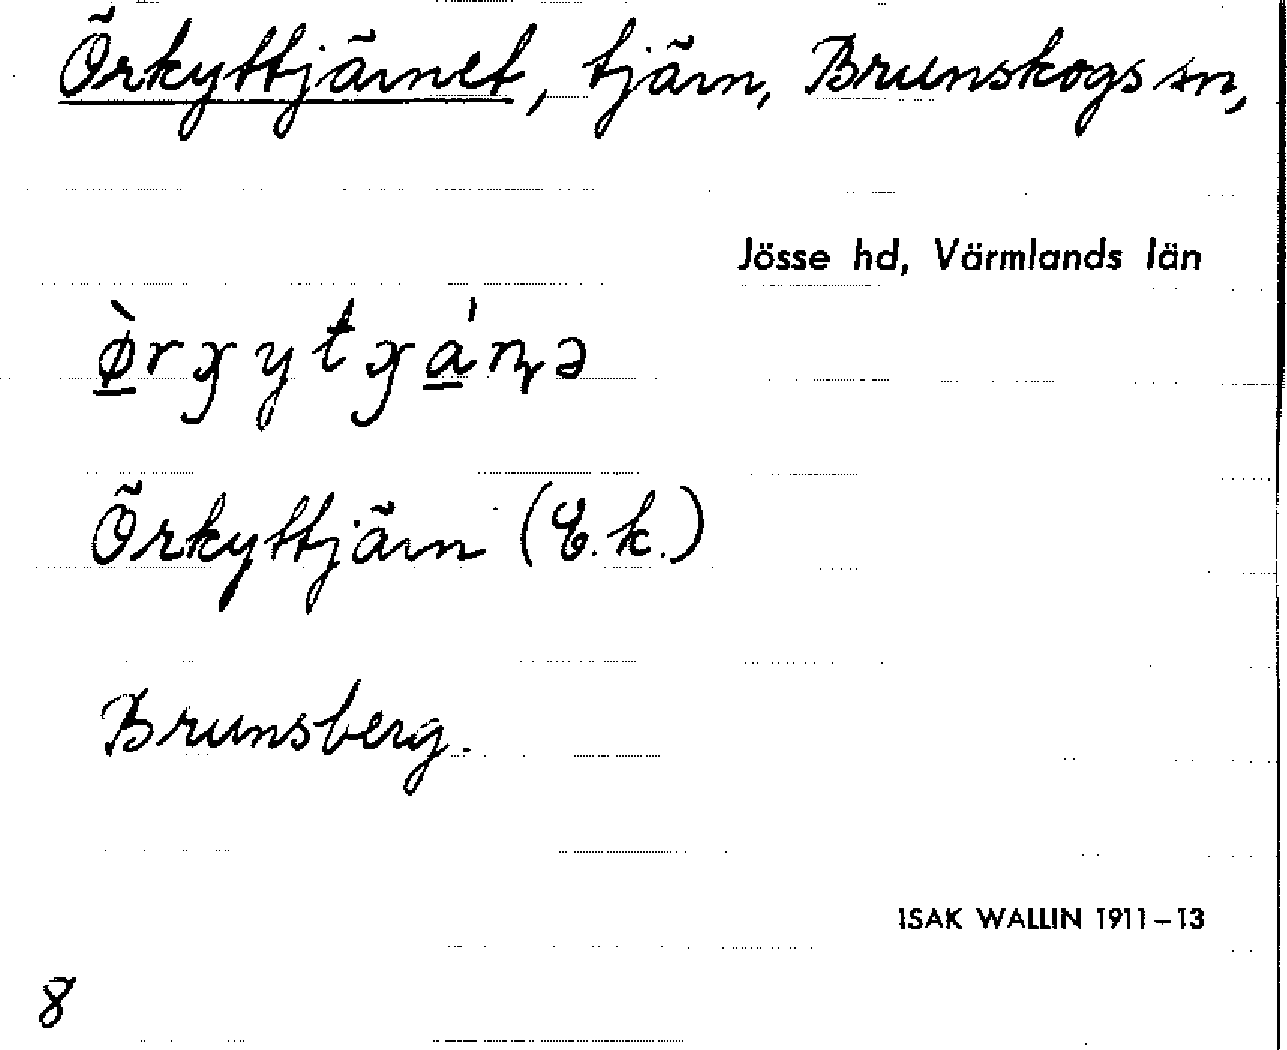 Örkyttjärnet, tjärn, Brunskogs sn,
Jösse hd, Värmlands län
Örkyttjärn (E.k.)
Brunsberg.
ISAK WALLIN 1911–13
8